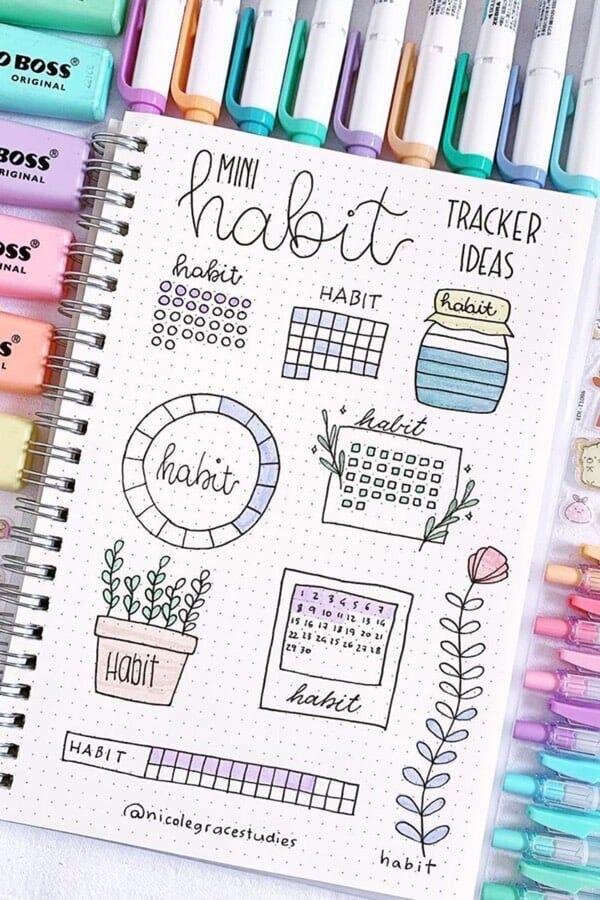 BOSS
ORIGINAL
BOSS
ORIGINAL
MINI
habit
TRACKER
IDEAS
habit
HABIT
habit
habit
habit
Habit
1 2 3 4 5 6 7
8 9 10 11 12 13 14
15 16 17 18 19 20 21
22 23 24 25 26 27 28
29 30
habit
HABIT
@nicolegracestudies
habit